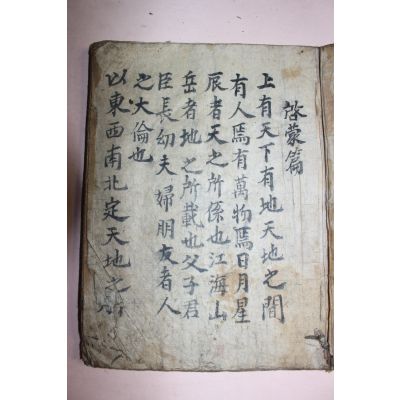 啓蒙篇
上有天下有地天地之間
有人焉有萬物焉日月星
辰者天之所係也江海山
岳者地之所載也父子君
臣長幼夫婦朋友者人
之大倫也
以東西南北定天地之所